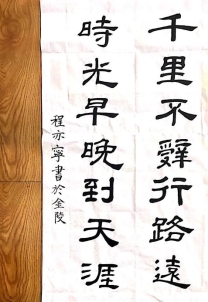 千里不辭行路遠
時光早晚到天涯
程亦寧書於金陵